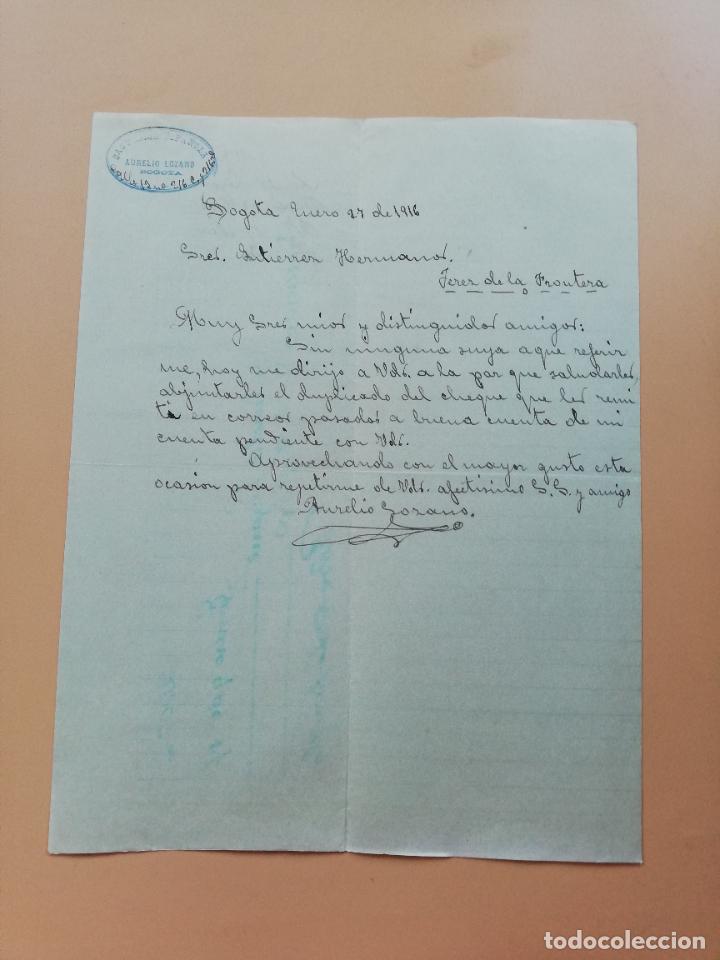 ESPAÑOLA
AURELIO LOZANO
BOGOTA
Calle 13 no 216
Bogota Enero 27 de 1916
Sres. Gutierrez Hermanos.
Jerez de la Frontera
Muy Sres mios y distinguidos amigos:
Sin ninguna suya a que referir
me, hoy me dirijo a Vds. a la par que saludarles,
abjuntarles el duplicado del cheque que les remi
ti en correos pasados a buena cuenta de mi
cuenta pendiente con Vds.
Aprovechando con el mayor gusto esta
ocasion para repetirme de Vds. afectisimo S.S. y amigo
Aurelio Lozano.
todocoleccion
todocoleccion.net